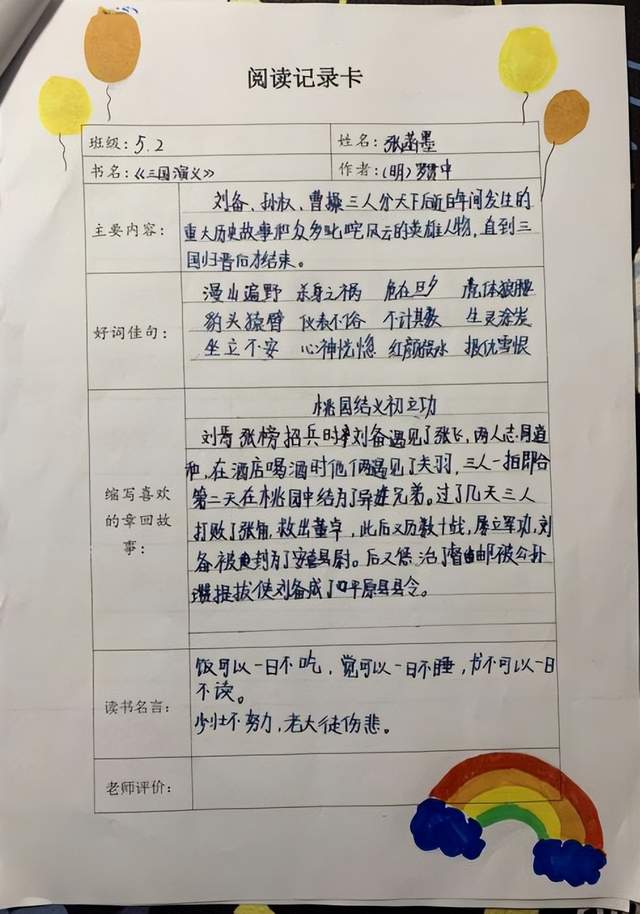 阅读记录卡
班级：5.2 姓名：张菡墨
书名：《三国演义》 作者：（明）罗贯中
主要内容：
刘备、孙权、曹操三人分天下后近百年间发生的
重大历史故事和众多叱咤风云的英雄人物，直到三
国归晋后才结束。
好词佳句：
漫山遍野 杀身之祸 危在旦夕 虎体狼腰
豹头猿臂 仪表不俗 不计其数 生灵涂炭
坐立不安 心神恍惚 红颜祸水 报仇雪恨
缩写喜欢
的章回故
事：
桃园结义初立功
刘焉张榜招兵时刘备遇见了张飞，两人志同道
和，在酒店喝酒时他们俩遇见了关羽，三人一拍即合
第二天在桃园中结为了异姓兄弟。过了几天三人
打败了张角，救出董卓，此后又历数十战，屡立军功，刘
备被封为了安喜县尉。后又惩治了督邮被公孙
瓒提拔使刘备成了平原县县令。
读书名言：
饭可以一日不吃，觉可以一日不睡，书不可以一日
不读。
少壮不努力，老大徒伤悲。
老师评价：